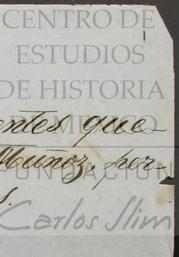 CENTRO DE
ESTUDIOS
DE HISTORIA
DE MÉXICO
entes que
Muñoz, per-
s.
FUNDACIÓN
Carlos Slim